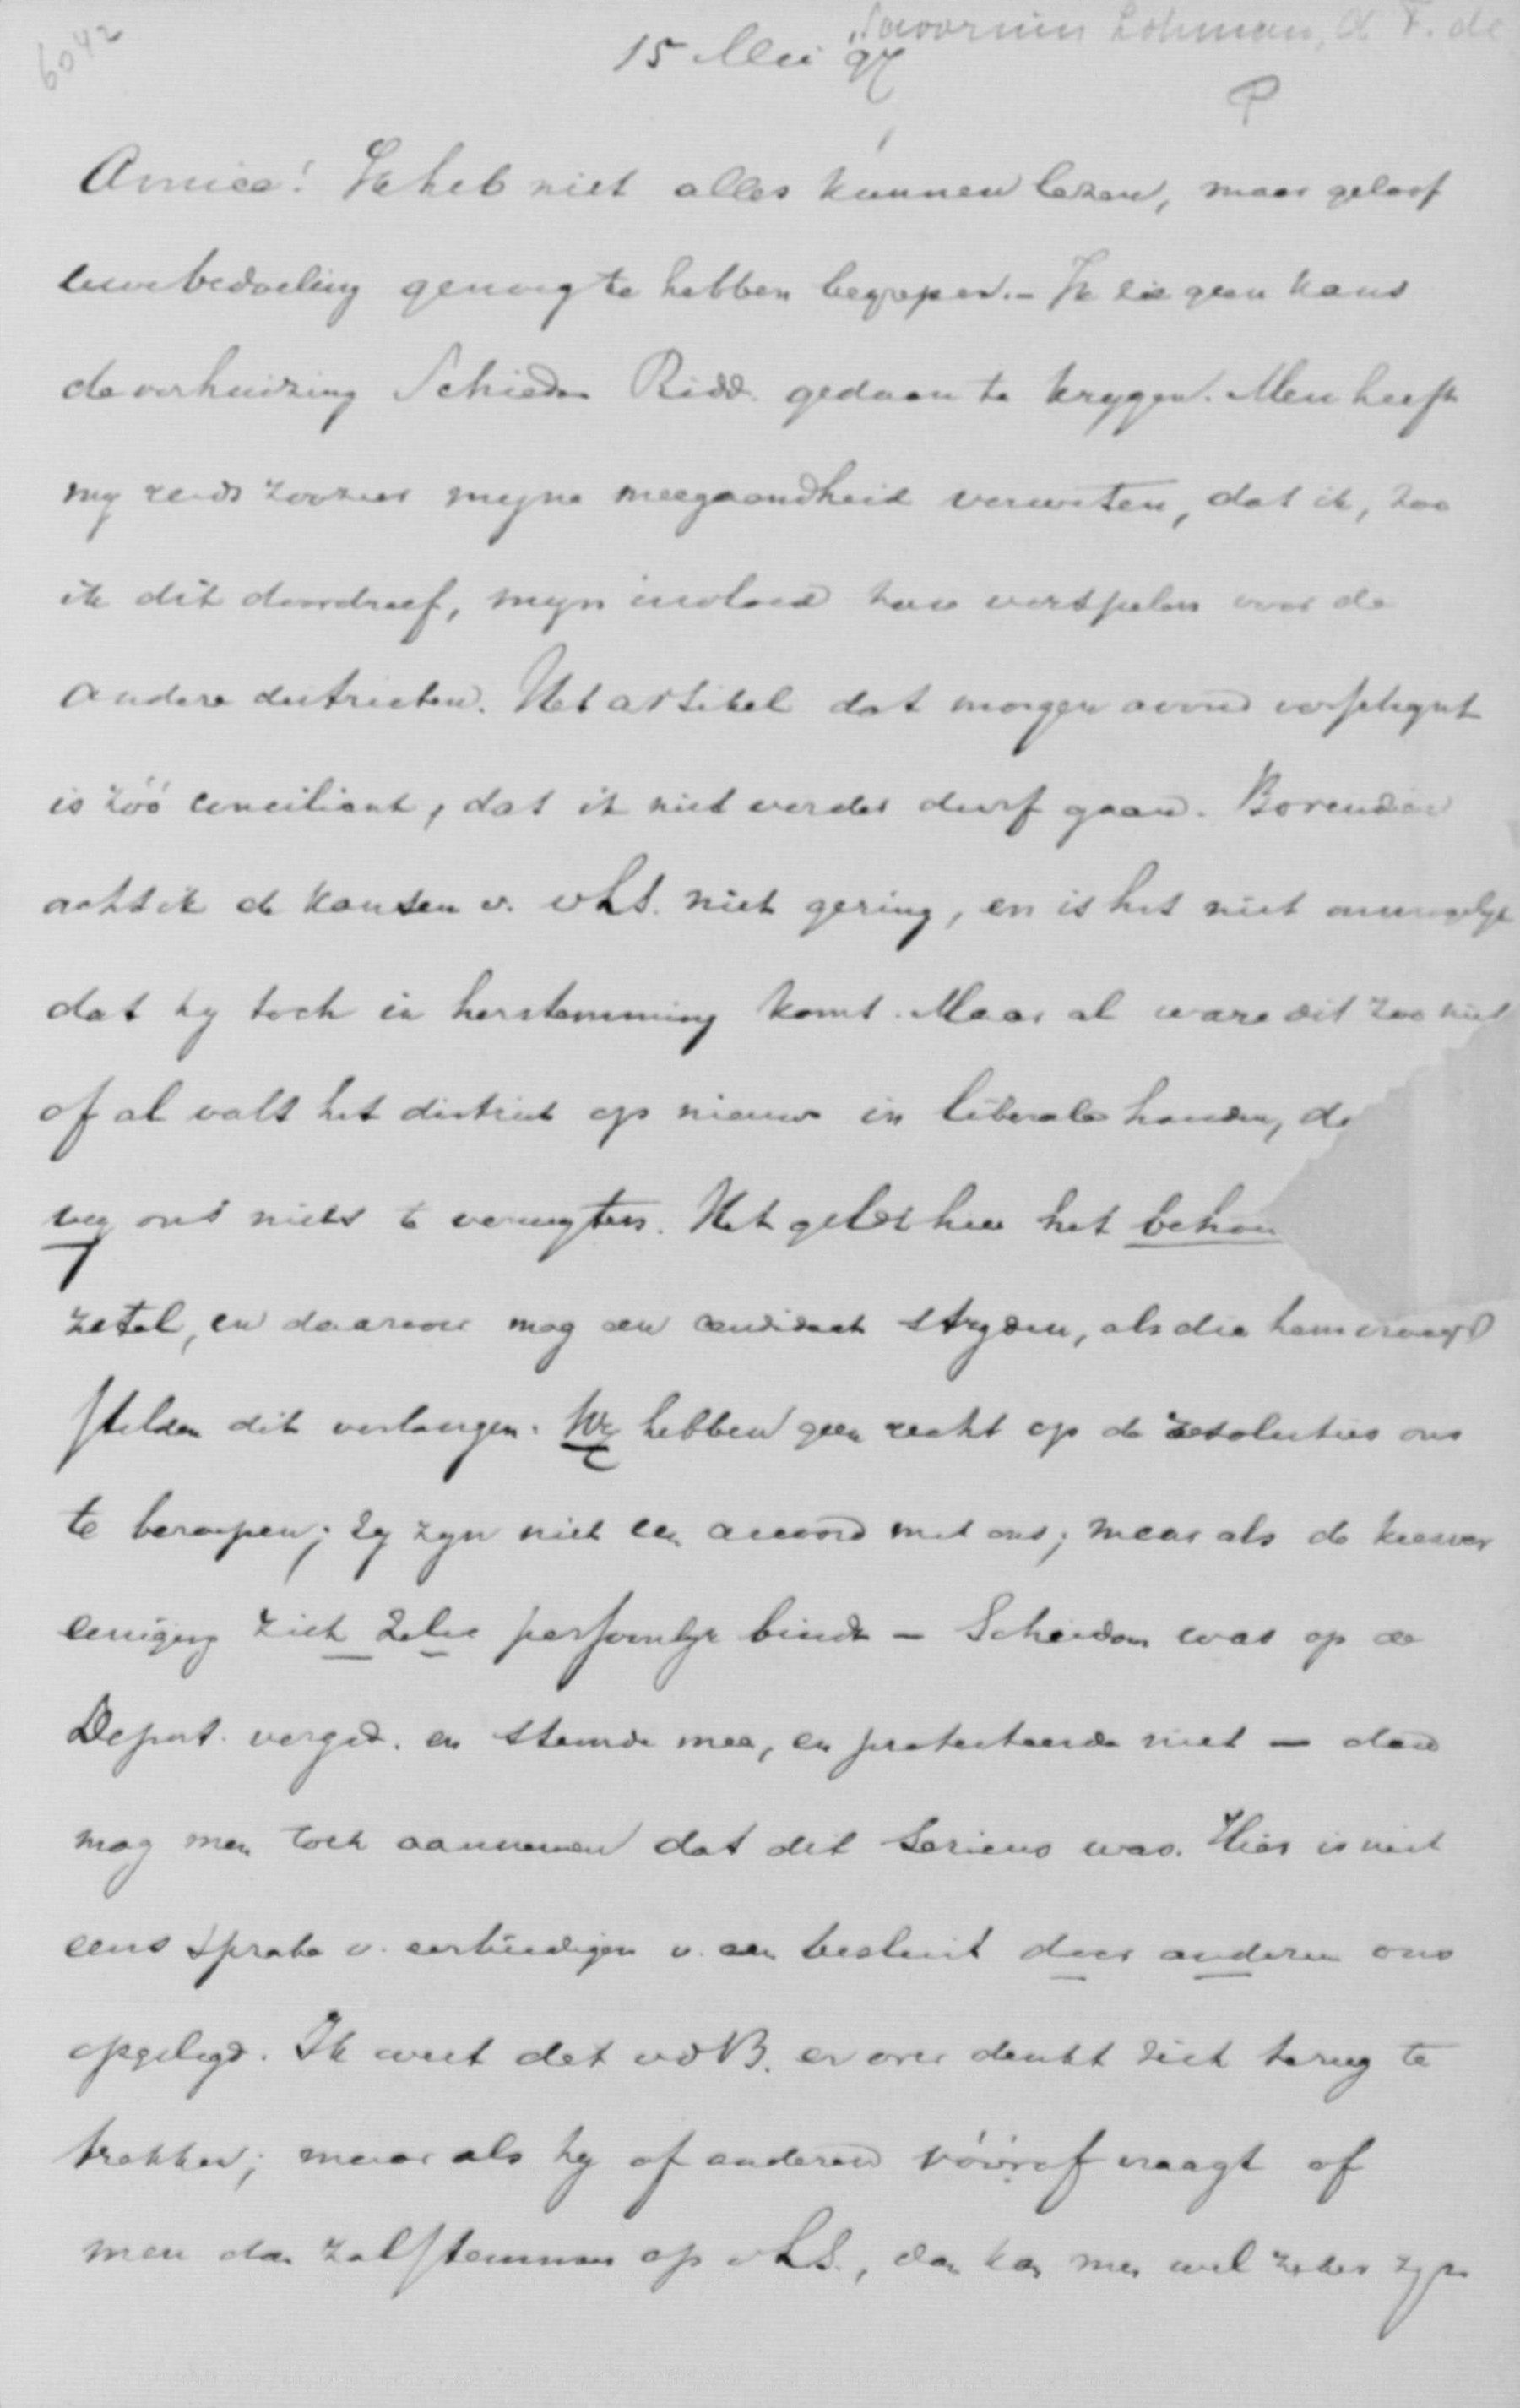 6042
Savornin Lohman, A. F. de
15 Mei 97
P
Amice! Ik heb niet alles kunnen lezen, maar geloof
uwe bedoeling genoeg te hebben begrepen. - Ik zie geen kans
de verhuizing Schiedam Ridd. gedaan te krygen. Men heeft
my reeds zoozeer myne meegaandheid verweten, dat ik, zoo
ik dit doordreef, myn invloed zou verspelen voor de
andere districten. Het artikel dat morgen avond verschynt
is zóó conciliant, dat ik niet verder durf gaan. Bovendien
acht ik de kansen v. vLS. niet gering, en is het niet onmogelyk
dat hy toch in herstemming komt. Maar al ware dit zoo niet
of al valt het district op nieuw in liberale handen, de
wy ons niets te verwyten. Het geldt hier het behou
zetel, en daarvoor mag een candidaat stryden, als die hem
stelden dit verlangen. Wy hebben geen recht op de resoluties ons
te beroepen; zy zyn niet een accoord met ons; maar als de kiesver
eeniging zich zelve persoonlyk bindt - Schiedam was op de
Deput. vergad. en stemde mee, en protesteerde niet - dan
mag men toch aannemen dat dit serieus was. Hier is niet
eens sprake v. eerbiedigen v. een besluit door anderen ons
opgelegd. Ik weet dat vdB. er over denkt zich terug te
trekken; maar als hy of anderen vóóraf vraagt of
men dan zal stemmen op vLS., dan kan men wel zeker zyn